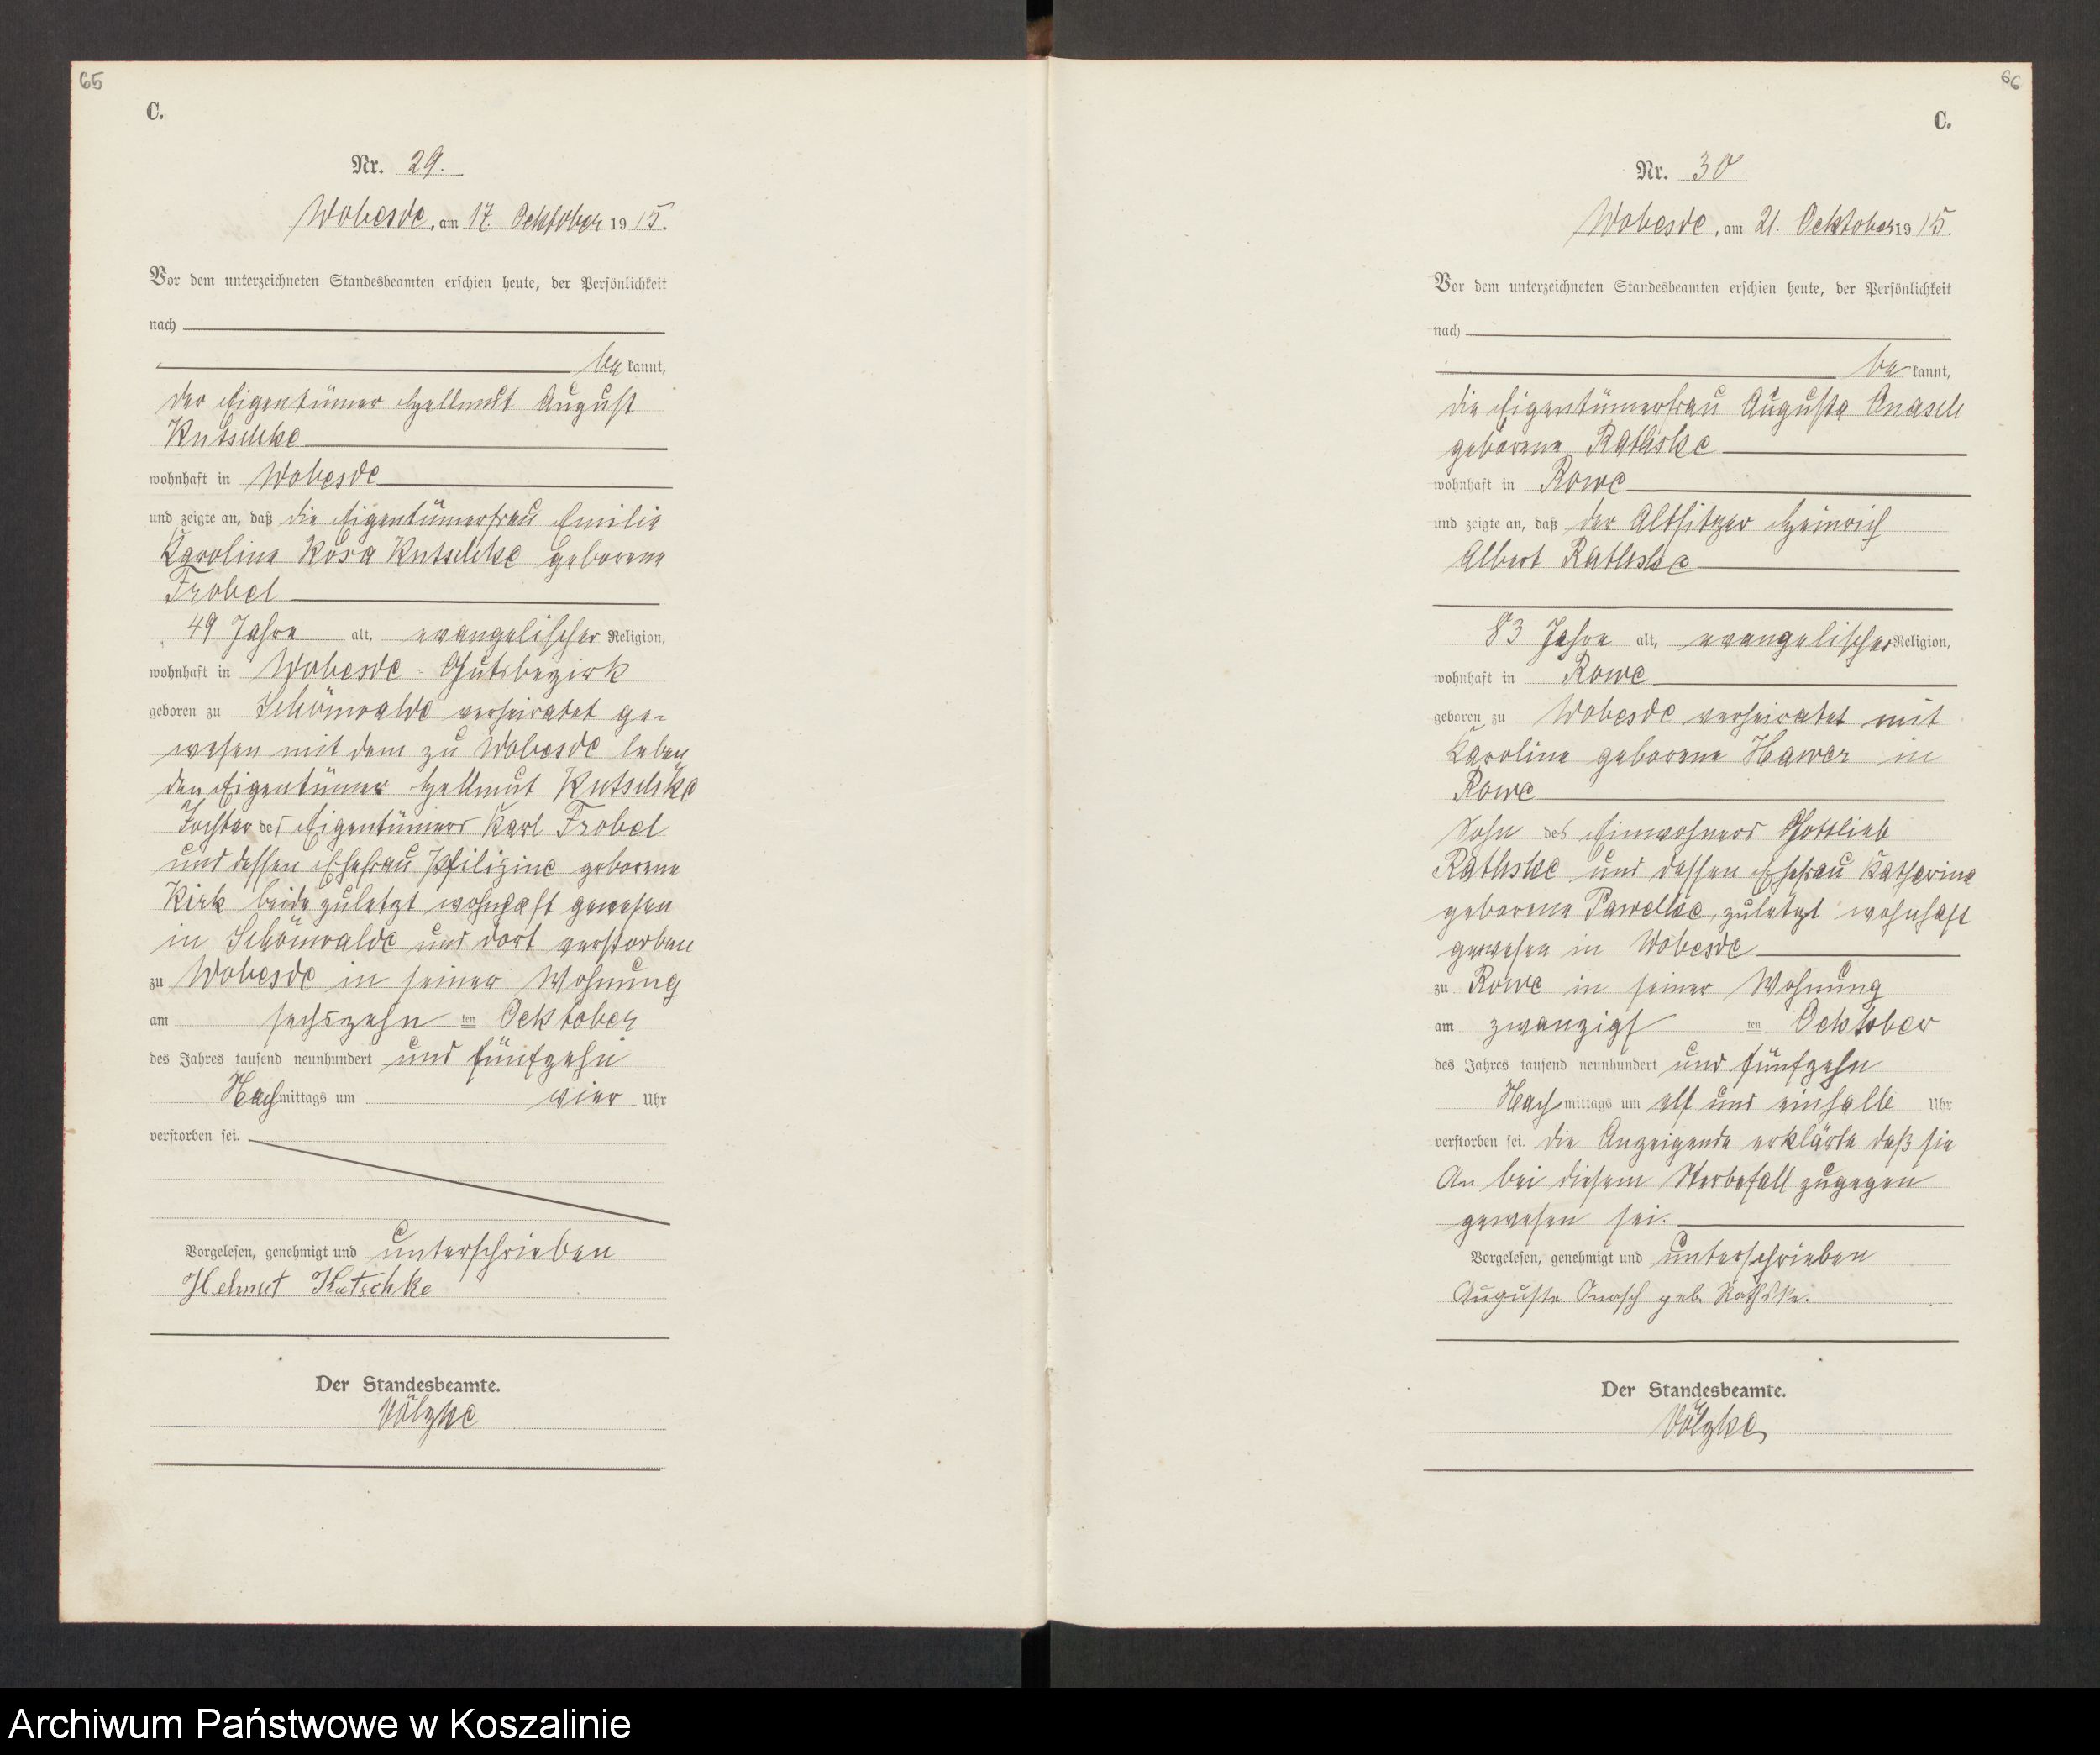 65
C.
Nr. 29.
Wobesde, am 17. Ocktober 1915.
Vor dem unterzeichneten Standesbeamten erschien heute, der Persönlichkeit
nach
be kannt,
der Eigentümer Hellmut August
Kutschke
wohnhaft in Wobesde
und zeigte an, daß die Eigentümerfrau Emilie
Karoline Rosa Kutschke geborene
Frobel
49 Jahre alt, evangelischer Religion,
wohnhaft in Wobesde - Gutsbezirk
geboren zu Schönwalde verheiratet ge-
wesen mit dem zu Wobesde leben
den Eigentümer Hellmut Kutschke
Tochter des Eigentümers Karl Frobel
und dessen Ehefrau geborene
Kirk beide zuletzt wohnhaft gewesen
in Schönwalde und dort verstorben
zu Wobesde in seiner Wohnung
am sechszehn ten Ocktober
des Jahres tausend neunhundert und fünfzehn
Nachmittags um vier Uhr
verstorben sei.
Vorgelesen, genehmigt und unterschrieben
Helmut Kutschke
Der Standesbeamte.
Völzke
66
C.
Nr. 30
Wobesde, am 21. Ocktober 1915.
Vor dem unterzeichneten Standesbeamten erschien heute, der Persönlichkeit
nach
be kannt,
die Eigentümerfrau Auguste Anasch
geborene Rathske
wohnhaft in Rowe
und zeigte an, daß der Altsitzer Heinrich
Albert Rathske
83 Jahre alt, evangelischer Religion,
wohnhaft in Rowe
geboren zu Wobesde verheiratet mit
Karoline geborene Hawer in
Rowe
Sohn des Einwohners Gottlieb
Rathske und dessen Ehefrau Katharina
geborene Pawelke, zuletzt wohnhaft
gewesen in Wobesde
zu Rowe in seiner Wohnung
am zwanzigs ten Ocktober
des Jahres tausend neunhundert und fünfzehn
Nach mittags um elf und einhalb Uhr
verstorben sei. die Anzeigende erklärte daß sie
An bei diesem Sterbefall zugegen
gewesen sei.
Vorgelesen, genehmigt und unterschrieben
Auguste Anasch geb. Rathske.
Der Standesbeamte.
Völzke
Archiwum Państwowe w Koszalinie